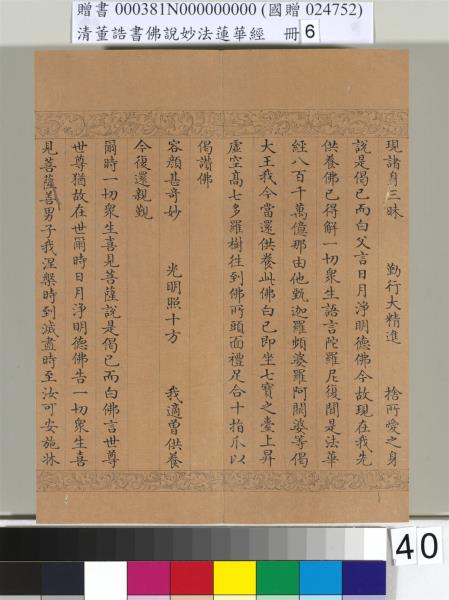 贈書 000381N000000000 (國贈 024752)
清董誥書佛說妙法蓮華經 冊 6
現諸身三昧 勤行大精進 捨所愛之身
說是偈已而白父言日月淨明德佛今故現在我先
供養佛已得解一切眾生語言陀羅尼復聞是法華
經八百千萬億那由他甄迦羅頻婆羅阿閦婆等偈
大王我今當還供養此佛白已即坐七寶之臺上昇
虛空高七多羅樹往到佛所頭面禮足合十指爪以
偈讚佛
容顏甚奇妙 光明照十方 我適曾供養
今復還親覲
爾時一切眾生喜見菩薩說是偈已而白佛言世尊
世尊猶故在世爾時日月淨明德佛告一切眾生喜
見菩薩善男子我涅槃時到滅盡時至汝可安施牀
40